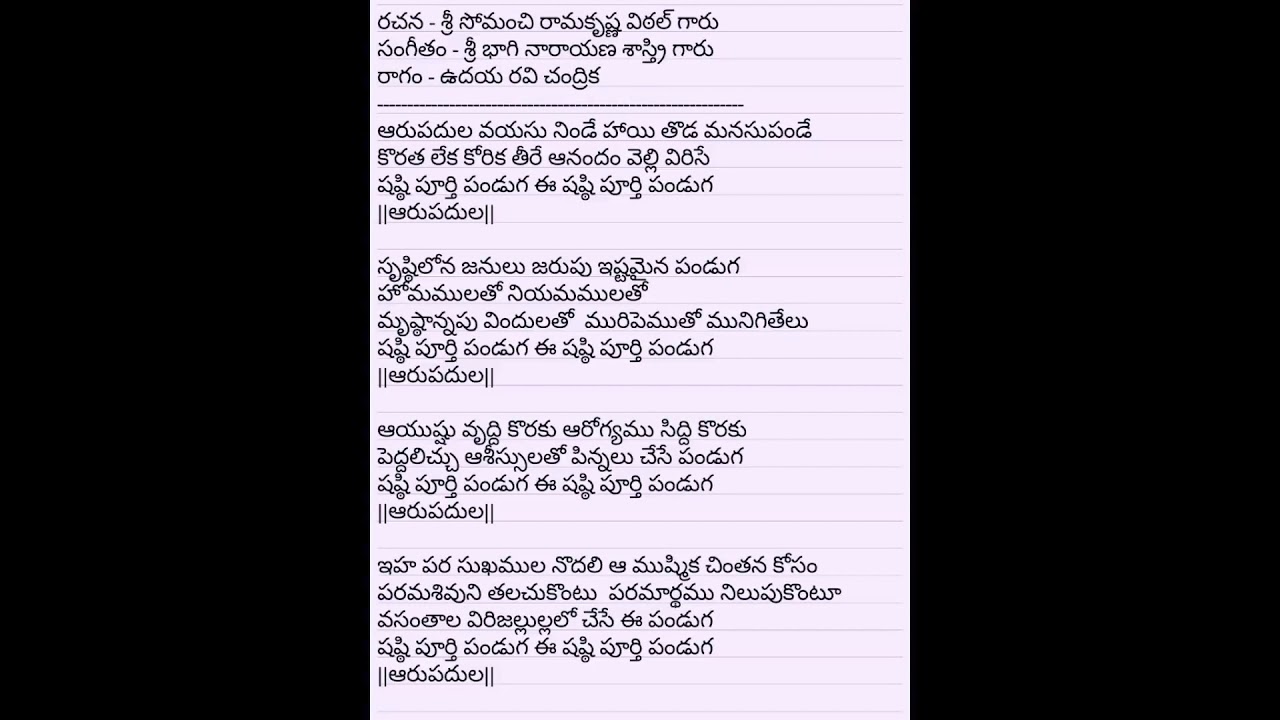 రచన - శ్రీ సోమంచి రామకృష్ణ విఠల్ గారు
సంగీతం - శ్రీ భాగి నారాయణ శాస్త్రి గారు
రాగం - ఉదయ రవి చంద్రిక
-------------------------------------------------------------
ఆరుపదుల వయసు నిండే హాయి తొడ మనసుపండే
కొరత లేక కోరిక తీరే ఆనందం వెల్లి విరిసే
షష్ఠి పూర్తి పండుగ ఈ షష్ఠి పూర్తి పండుగ
||ఆరుపదుల||
సృష్ఠిలోన జనులు జరుపు ఇష్టమైన పండుగ
హోమములతో నియమములతో
మృష్ఠాన్నపు విందులతో మురిపెముతో మునిగితేలు
షష్ఠి పూర్తి పండుగ ఈ షష్ఠి పూర్తి పండుగ
||ఆరుపదుల||
ఆయుష్షు వృద్ది కొరకు ఆరోగ్యము సిద్ది కొరకు
పెద్దలిచ్చు ఆశీస్సులతో పిన్నలు చేసే పండుగ
షష్ఠి పూర్తి పండుగ ఈ షష్ఠి పూర్తి పండుగ
||ఆరుపదుల||
ఇహ పర సుఖముల నొదలి ఆ ముష్మిక చింతన కోసం
పరమశివుని తలచుకొంటు పరమార్థము నిలుపుకొంటూ
వసంతాల విరిజల్లుల్లలో చేసే ఈ పండుగ
షష్ఠి పూర్తి పండుగ ఈ షష్ఠి పూర్తి పండుగ
||ఆరుపదుల||